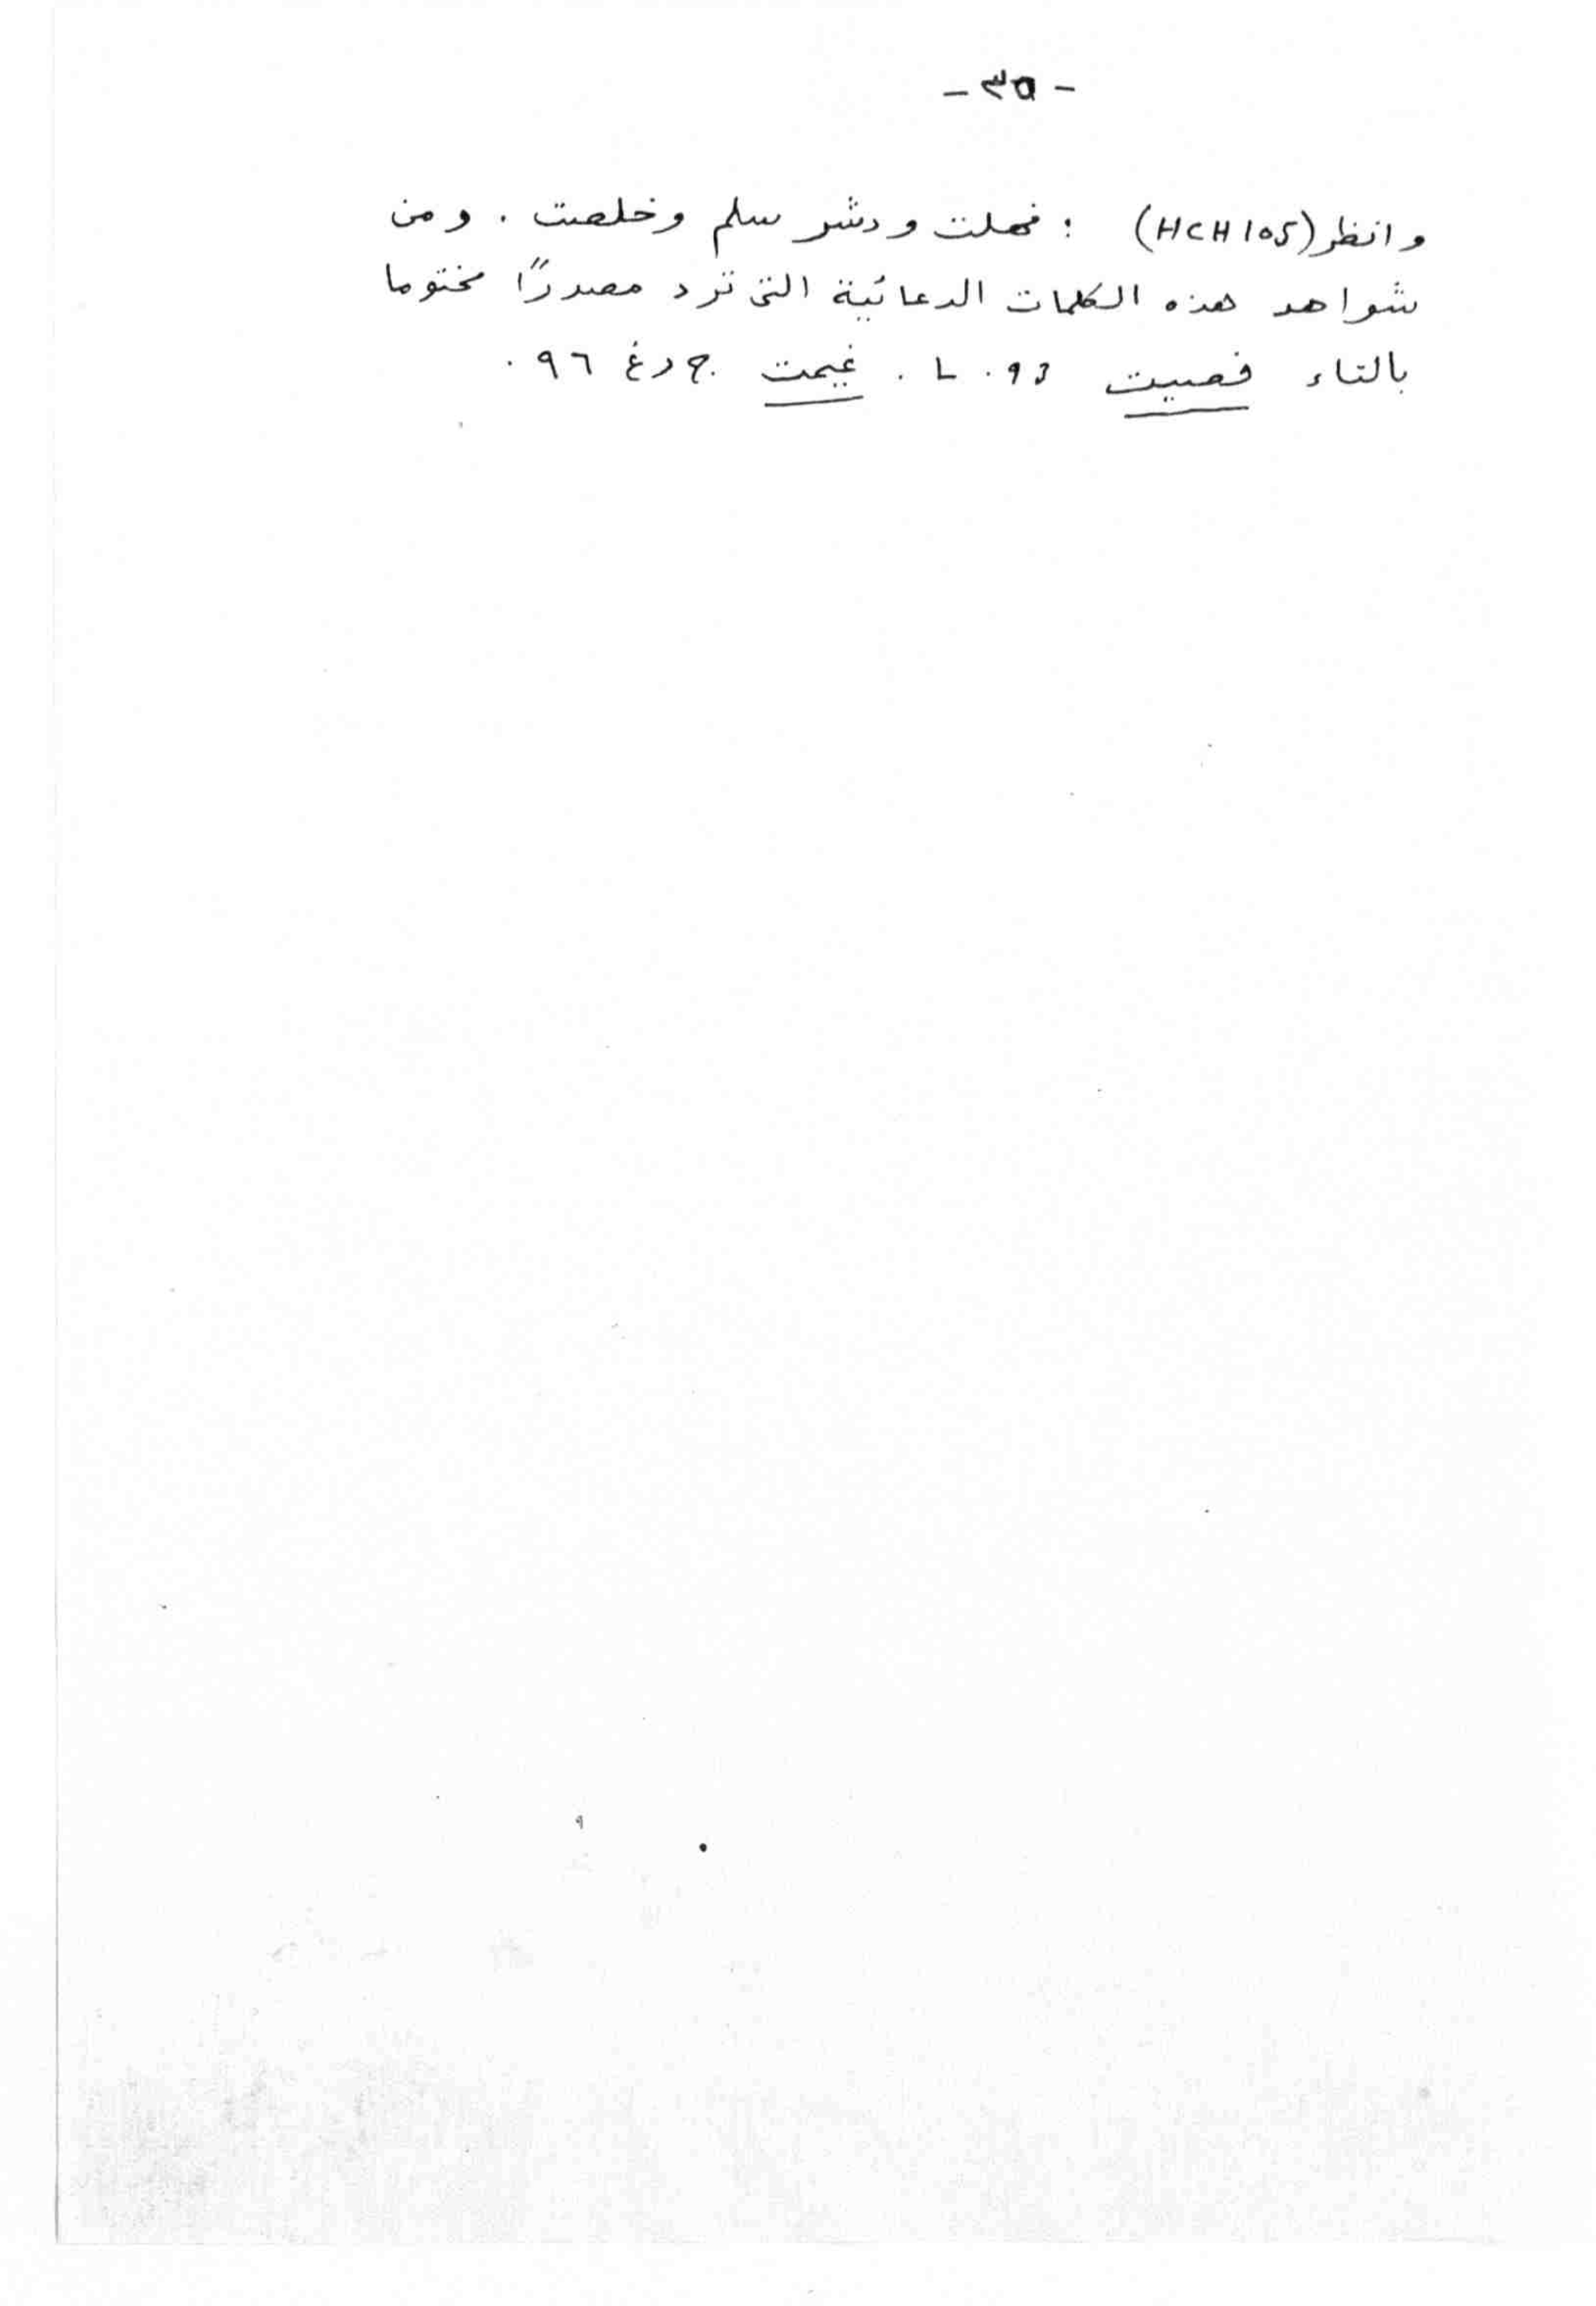 - ٣٥ -
وانظر (HCH 105) : فهلت ودشر سلم وخلصت . ومن
شواهد هذه الكلمات الدعائية التى ترد مصدرًا مختوما
بالتاء فصيت . L . غيمت ج رغ ٩٦ .